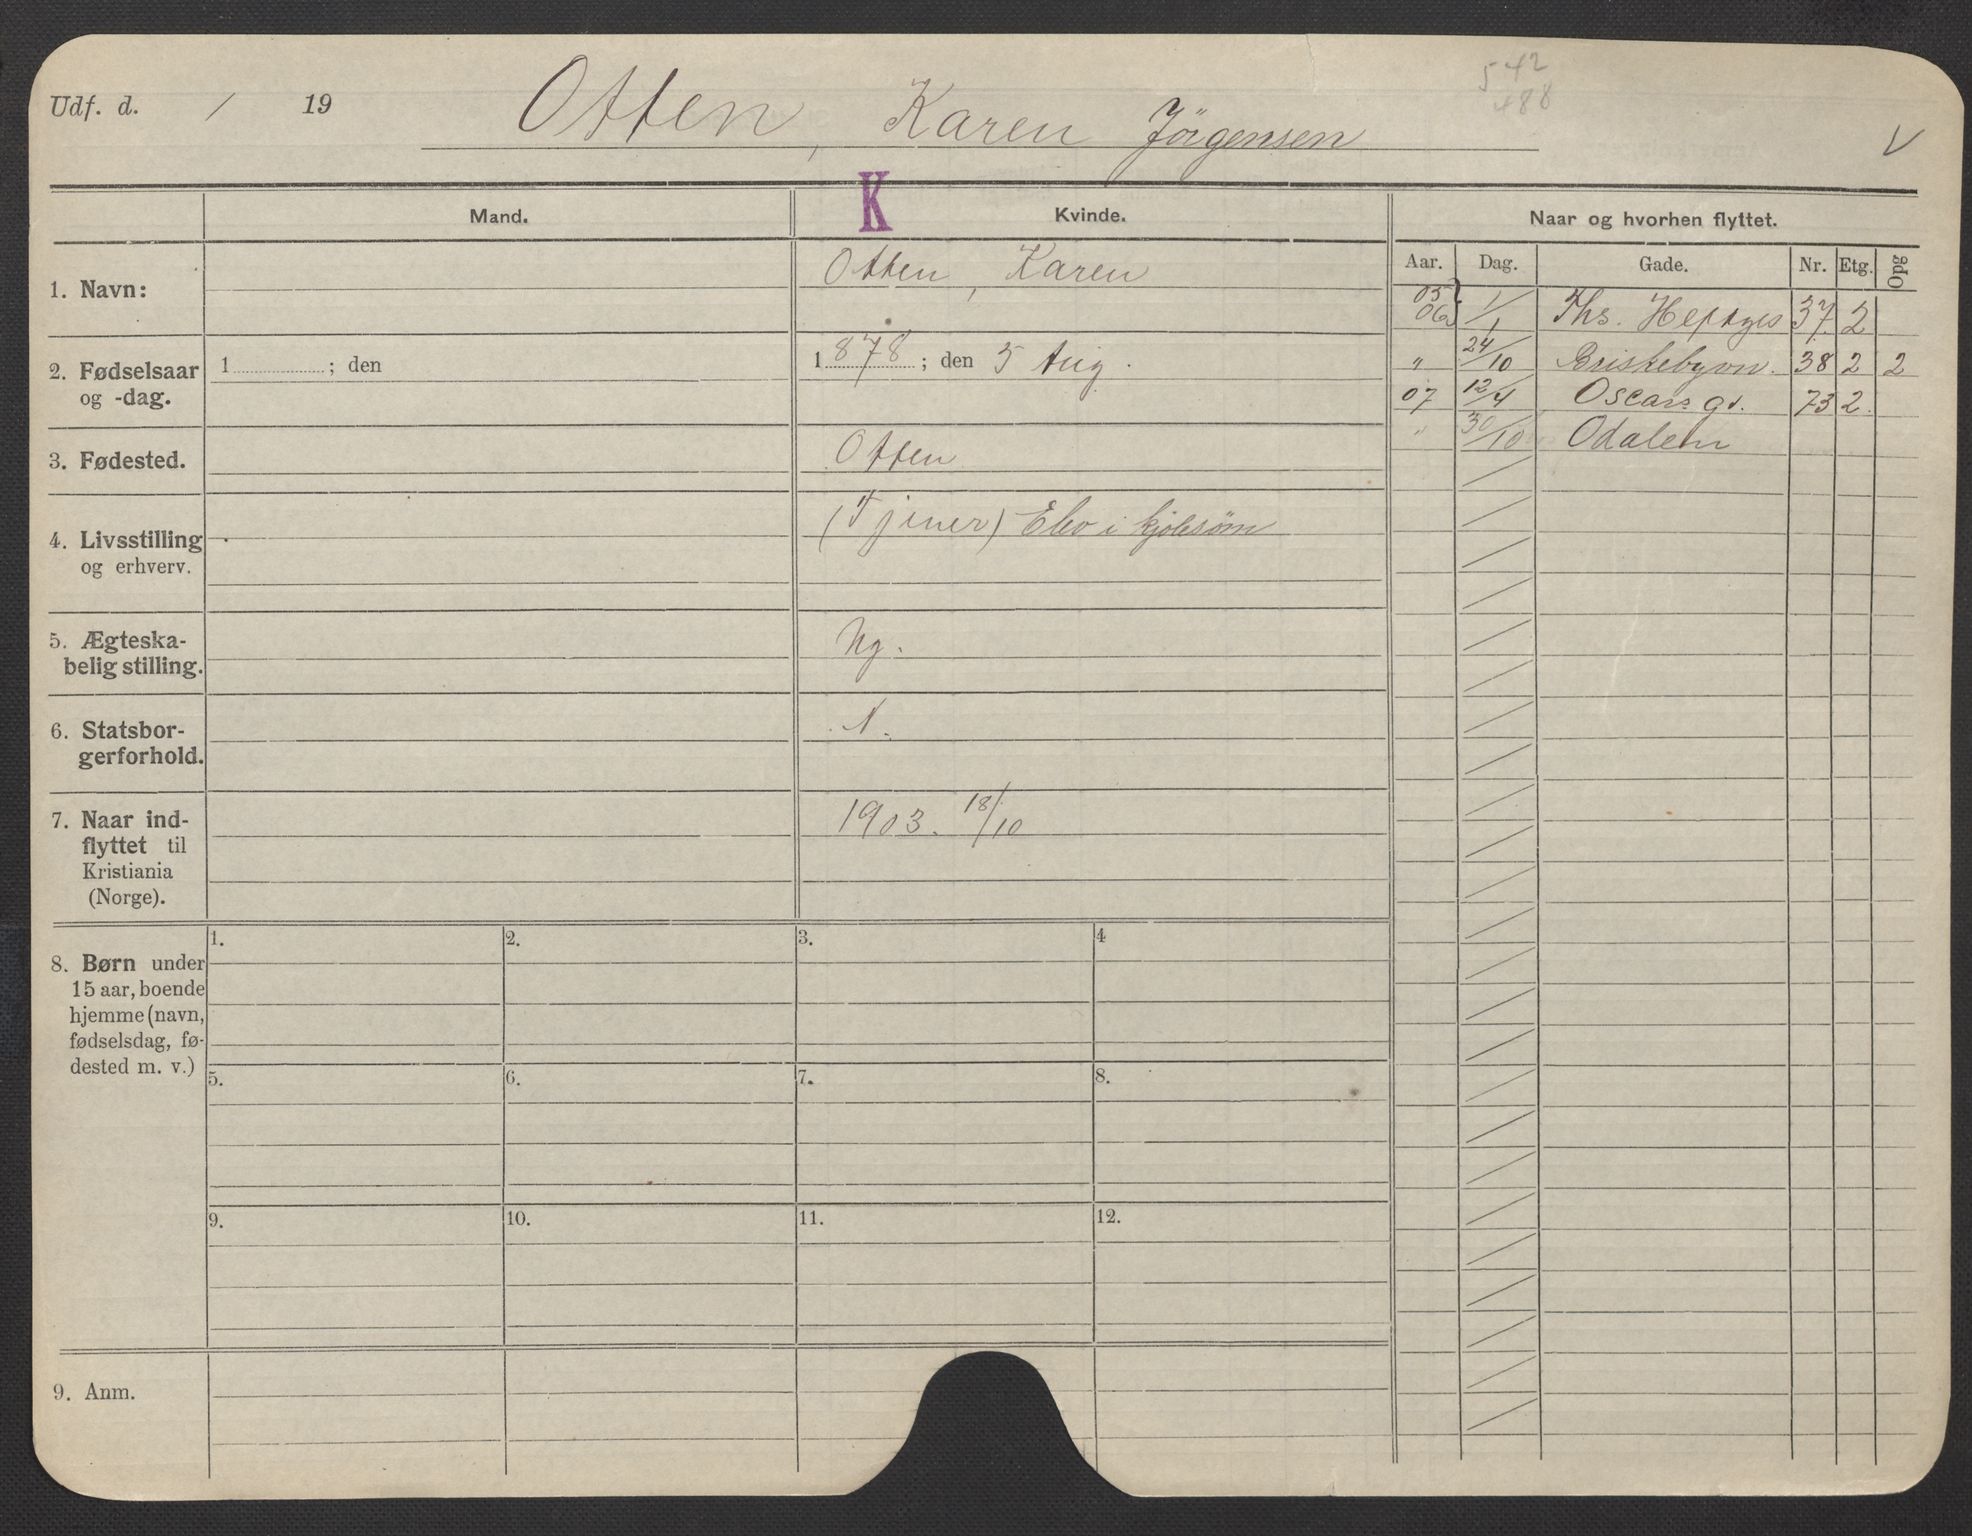 Udf. d. / 19
Otten, Karen Jörgensen
542
488
V
K
Mand.
Kvinde.
Naar og hvorhen flyttet.
Aar. Dag. Gade. Nr. Etg. Opg
1. Navn:
Otten, Karen
2. Fødselsaar
og -dag.
1 ; den
1878 ; den 5 Aug.
3. Fødested.
Otten
4. Livsstilling
og erhverv.
(Tjener) Elev i kjolesøm
5. Ægteska-
belig stilling.
Ug.
6. Statsbor-
gerforhold.
N.
7. Naar ind-
flyttet til
Kristiania
(Norge).
1903. 18/10
05 06 1/1 Ths. Heftyes 37 2
" 24/10 Briskebyvn. 38 2 2
07 12/4 Oscars gt. 73 2
" 30/10 Odalen
8. Børn under
15 aar, boende
hjemme (navn,
fødselsdag, fø-
dested m. v.)
1. 2. 3. 4
5. 6. 7. 8.
9. 10. 11. 12.
9. Anm.